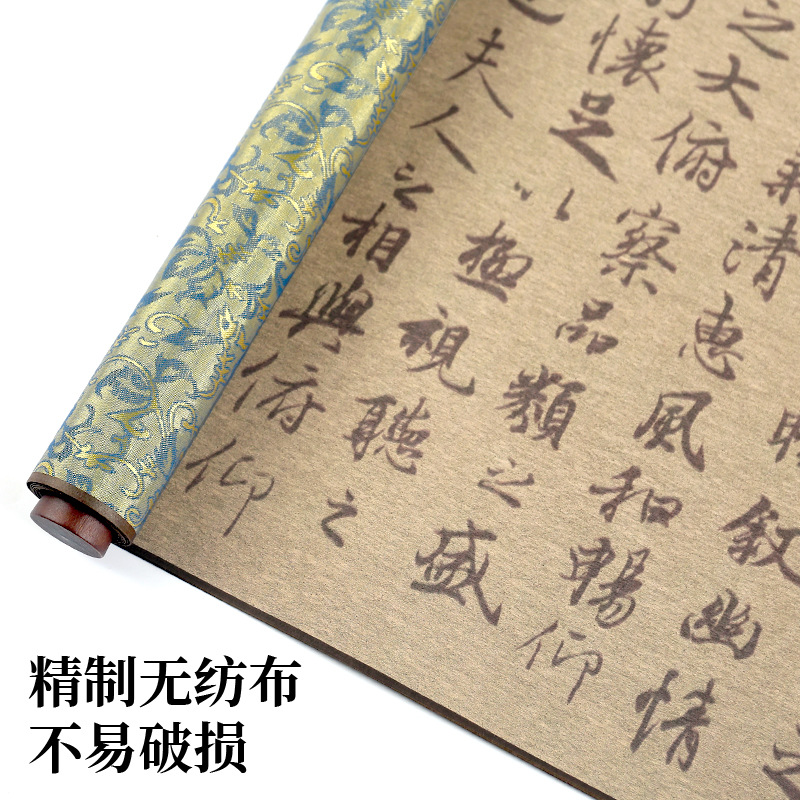 叙幽情
清惠風和暢仰
之大俯察品類之盛
懷足以極視聽之
夫人之相與俯仰
精制无纺布
不易破损